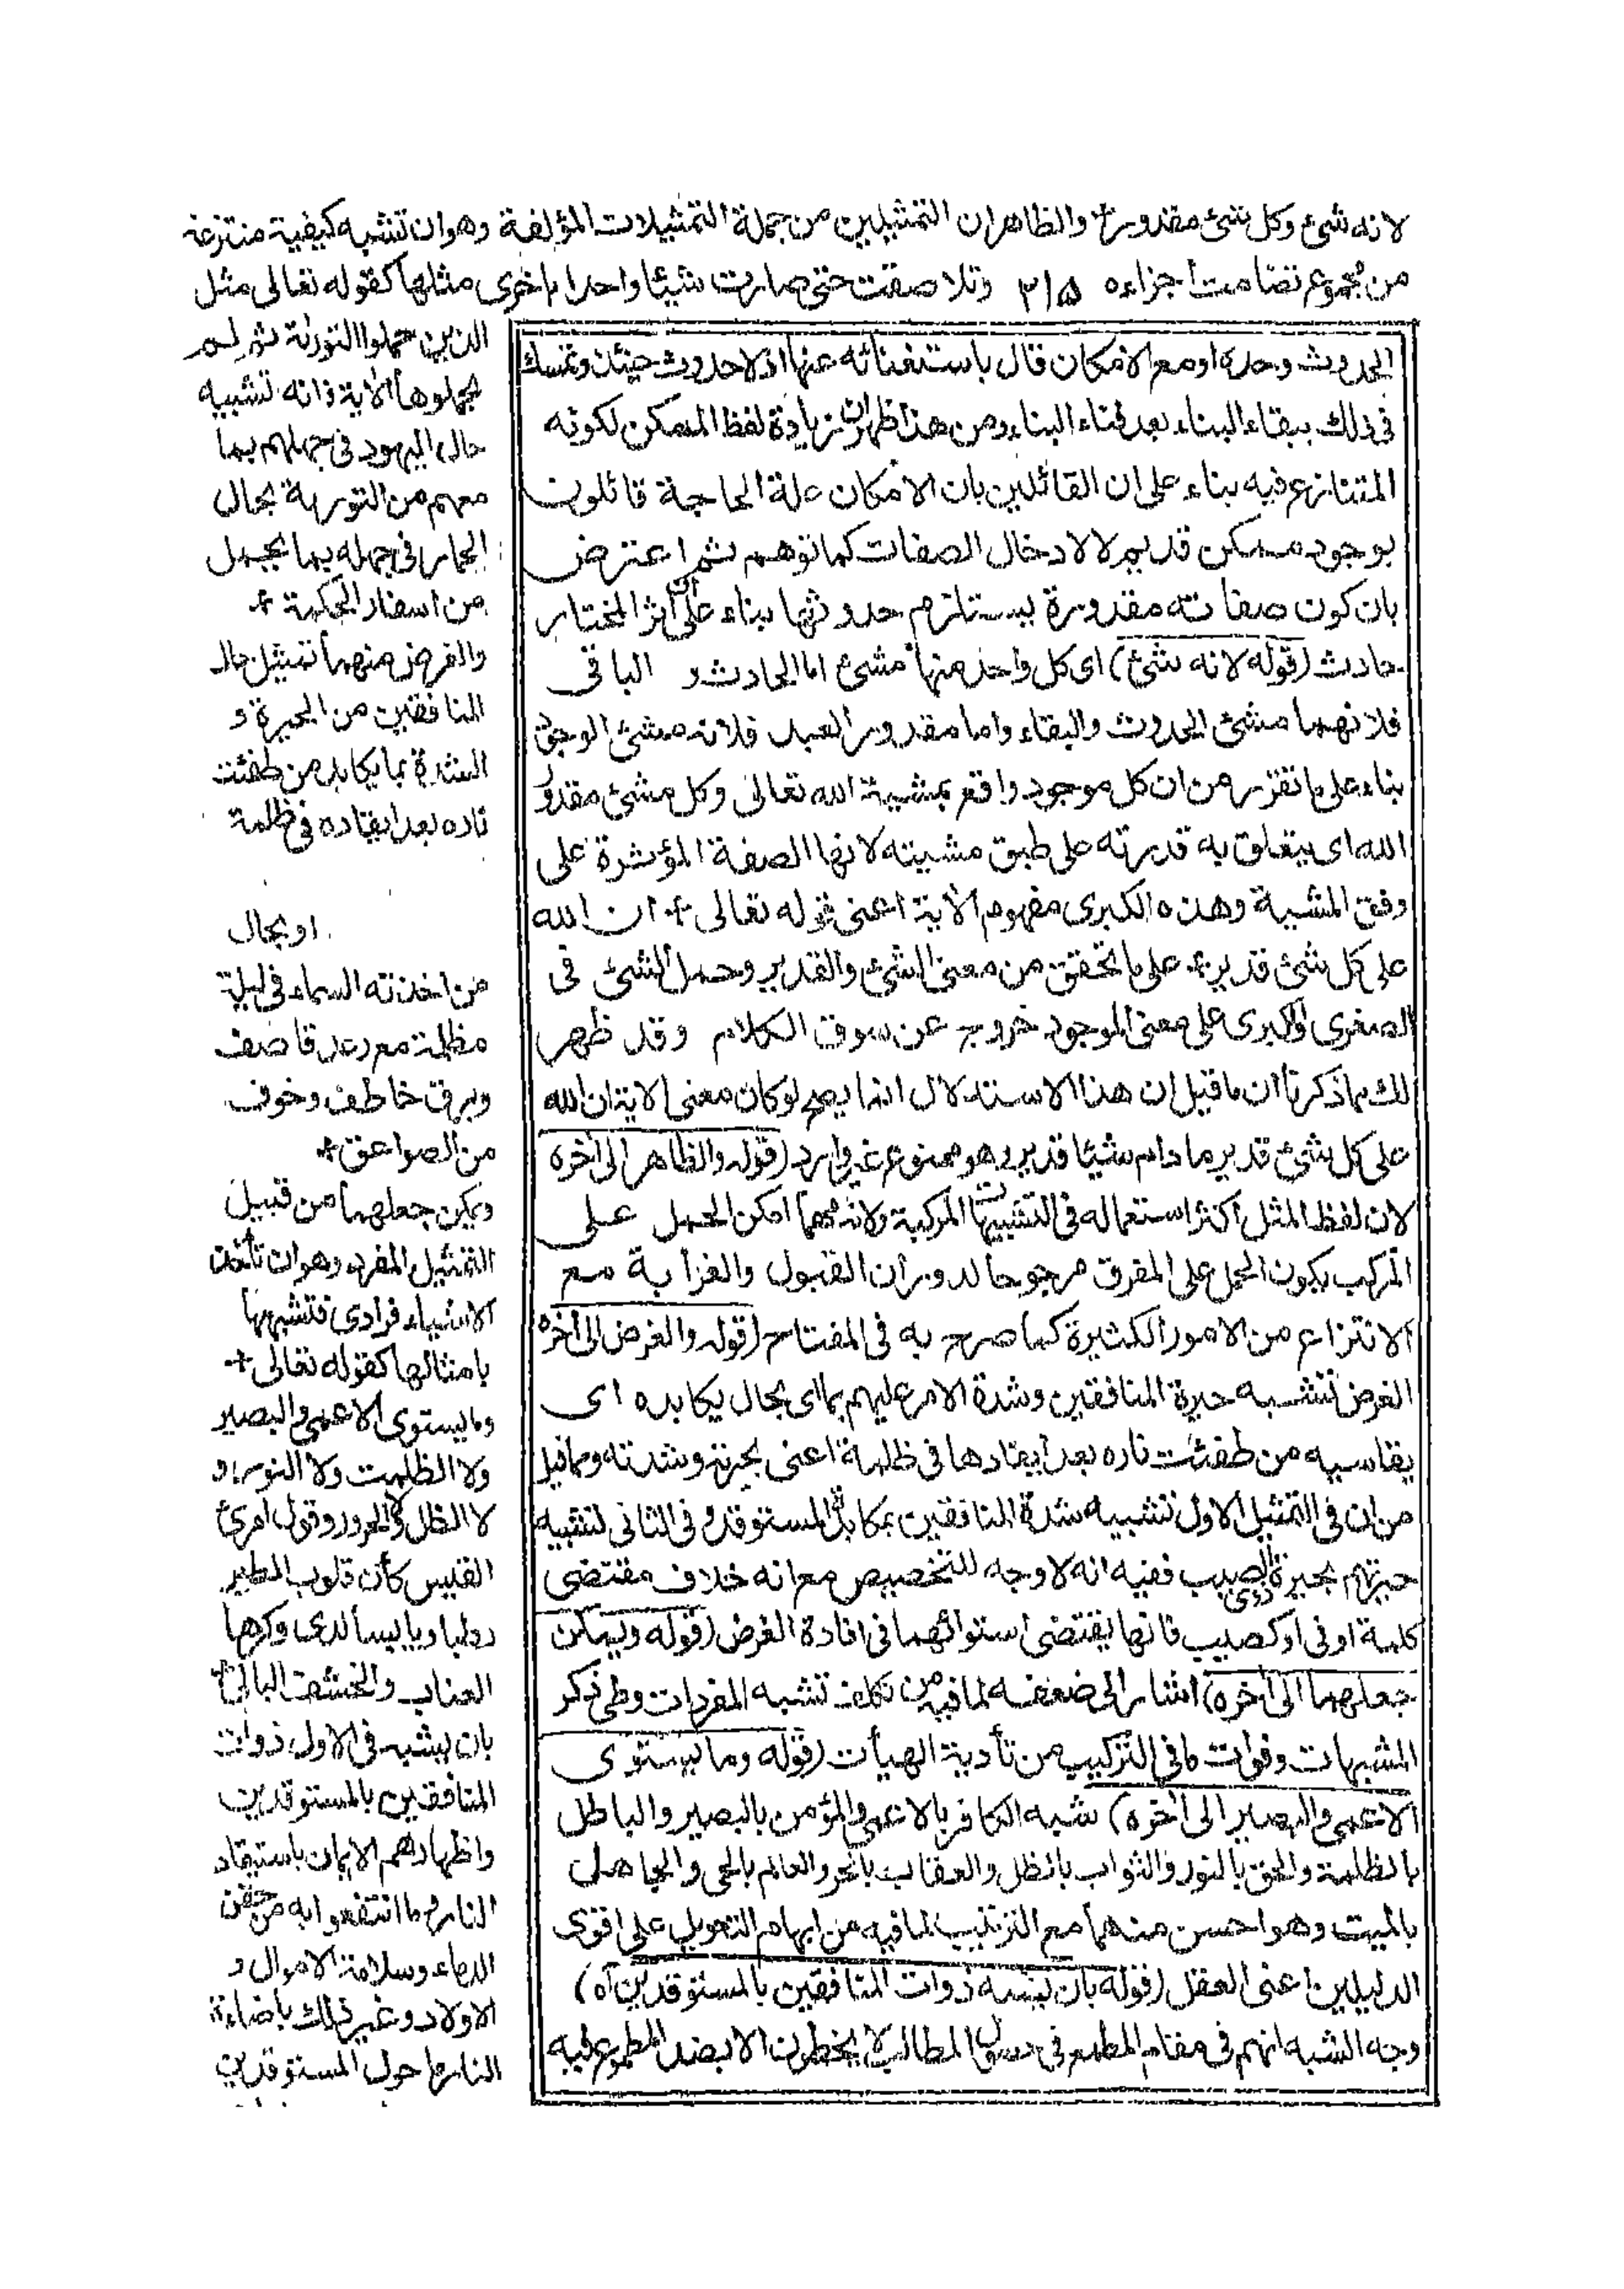 لانه شئ وكل شئ مقدور + والظاهر ان التمثيلين من جملة التمثيلات المؤلفة وهو ان تشبه كيفية منتزعة
من مجموع تضامت اجزاءه ٣١٥ وتلاصقت حتى صارت شيئا واحدا باخرى مثلها كقوله تعالى مثل
الذين حملوا التورىة ثم لم
يحملوها الاية فانه تشبيه
حال اليهود فى جهلهم بما
معهم من التورية بحال
الحمار فى جهله بما يحمل
من اسفار الحكمة +
والغرض منهما تمثيل حال
المنافقين من الحيرة و
الشدة بما يكابد من طفئت
ناره بعد ايقاده فى ظلمة
او بحال
من اخذته السماء فى ليلة
مظلمة مع رعد قاصف
وبرق خاطف وخوف
من الصواعق +
ويمكن جعلهما من قبيل
التمثيل المفرد وهو ان تأخذ
الاشياء فرادى فتشبهها
بامثالها كقوله تعالى +
وما يستوى الاعمى والبصير
ولا الظلمت ولا النور و
لا الظل ولا الحرور وقول امرئ
القيس كأن قلوب الطير
رطبا ويابسا لدى وكرها
العناب والحشف البالى +
بان يشبه فى الاول ذوات
المنافقين بالمستوقدين
واظهارهم الايمان باستيقاد
النار وما انتفعوا به من حقن
الدماء وسلامة الاموال و
الاولاد وغير ذلك باضاءة
النار ما حول المستوقدين
الحدوث وحده او مع الامكان قال باستغنائه عنها اذ لا حدوث حينئذ وتمسك
فى ذلك ببقاء البناء بعد فناء البناء ومن هذا ظهر ان زيادة لفظ الممكن لكونه
المتنازع فيه بناء على ان القائلين بان الامكان علة الحاجة قائلون
بوجود ممكن قديم لا لادخال الصفات كما توهم ثم اعترض
بان كون صفاته مقدورة يستلزم حدوثها بناء على ان اثر المختار
حادث (قوله لانه شئ) اى كل واحد منها مشئ اما الحادث و الباقى
فلانهما مشئ الحدوث والبقاء واما مقدور العبد فلانه مشئ الوجود
بناء على ما تقرر من ان كل موجود واقع بمشية الله تعالى وكل مشئ مقدور
الله اى يتعلق به قدرته على طبق مشيته لانها الصفة المؤثرة على
وفق المشية وهذه الكبرى مفهوم الاية اعنى قوله تعالى + ان الله
على كل شئ قدير + على ما تحقق من معنى الشئ والقدير وحمل الشئ فى
الصغرى والكبرى على معنى الموجود خروج عن سوق الكلام وقد ظهر
لك بما ذكرنا ان ما قيل ان هذا الاستدلال انما يصح لو كان معنى الاية ان الله
على كل شئ قدير ما دام شيئا قدير وهو ممنوع غير وارد (قوله والظاهر الى آخره
لان لفظ المثل اكثر استعماله فى التشبيهات المركبة ولانه مهما امكن الحمل على
المركب يكون الحمل على المفرق مرجوحا لدوران القبول والغرابة مع
الانتزاع من الامور الكثيرة كما صرح به فى المفتاح (قوله والغرض الى آخره
الغرض تشبه حيرة المنافقين وشدة الامر عليهم بما اى بحال يكابده اى
يقاسيه من طفئت ناره بعد ايقادها فى ظلمة اعنى بحيرته وشدته وما قيل
من ان فى التمثيل الاول تشبيه شدة المنافقين بمكابدة المستوقد و فى الثانى لتشبيه
حيرتهم بحيرة ذوى الصيب ففيه انه لا وجه للتخصيص مع انه خلاف مقتضى
كلمة او فى او كصيب فانها يقتضى استوائهما فى افادة الغرض (قوله ويمكن
جعلهما الى آخره) اشار الى ضعفه لما فيه من تكلف تشبه المفردات وطى ذكر
المشبهات وفوات ما فى التركيب من تأدية الهيأت (قوله وما يستوى
الاعمى والبصير الى آخره) شبه الكافر بالاعمى والمؤمن بالبصير والباطل
بالظلمة والحق بالنور والثواب بالظل والعقاب بالحر والعالم بالحى والجاهل
بالميت وهو احسن منهما مع الترتيب لما فيه من ابهام التعويل على اقوى
الدليلين اعنى العقل (قوله بان يشبه ذوات المنافقين بالمستوقدين آه)
وجه الشبه انهم فى مقام الطمع فى حصول المطالب لا يخطرن الا بضد المطموع فيه